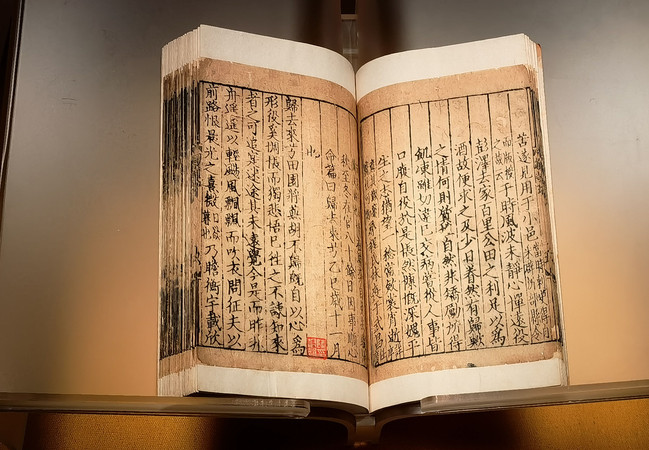 苦遂見用于小邑
于時風波未靜心憚遠役
彭澤去家百里公田之利足以為
酒故便求之及少日眷然有歸歟
之情何則質性自然非矯勵所得
飢凍雖切違己交病嘗從人事皆
口腹自役於是悵然慷慨深媿平
生之志猶望一稔當斂裳宵逝
至冬在官八十餘日因事順心
命篇曰歸去來兮乙巳歲十一月
也
歸去來兮田園將蕪胡不歸既自以心為
形役奚惆悵而獨悲悟已往之不諫知來
者之可追寔迷途其未遠覺今是而昨非
舟遙遙以輕颺風飄飄而吹衣問征夫以
前路恨晨光之熹微乃瞻衡宇載欣